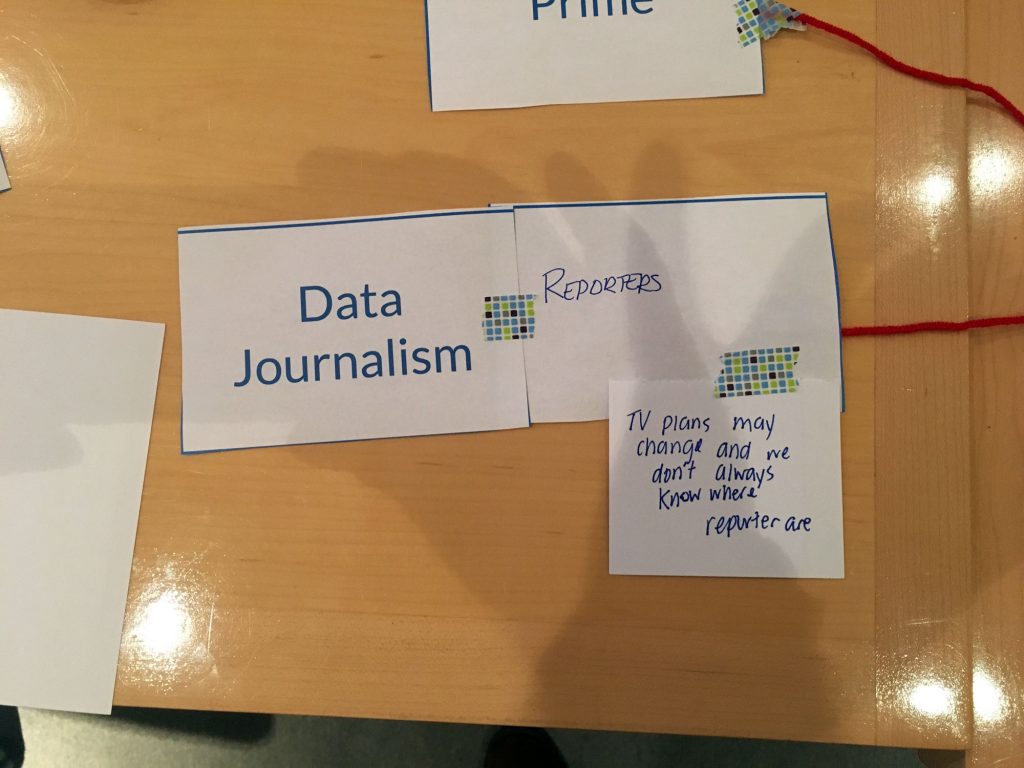 Prime
Data
Journalism
REPORTERS
TV plans may
change and we
don't always
know where
reporter are